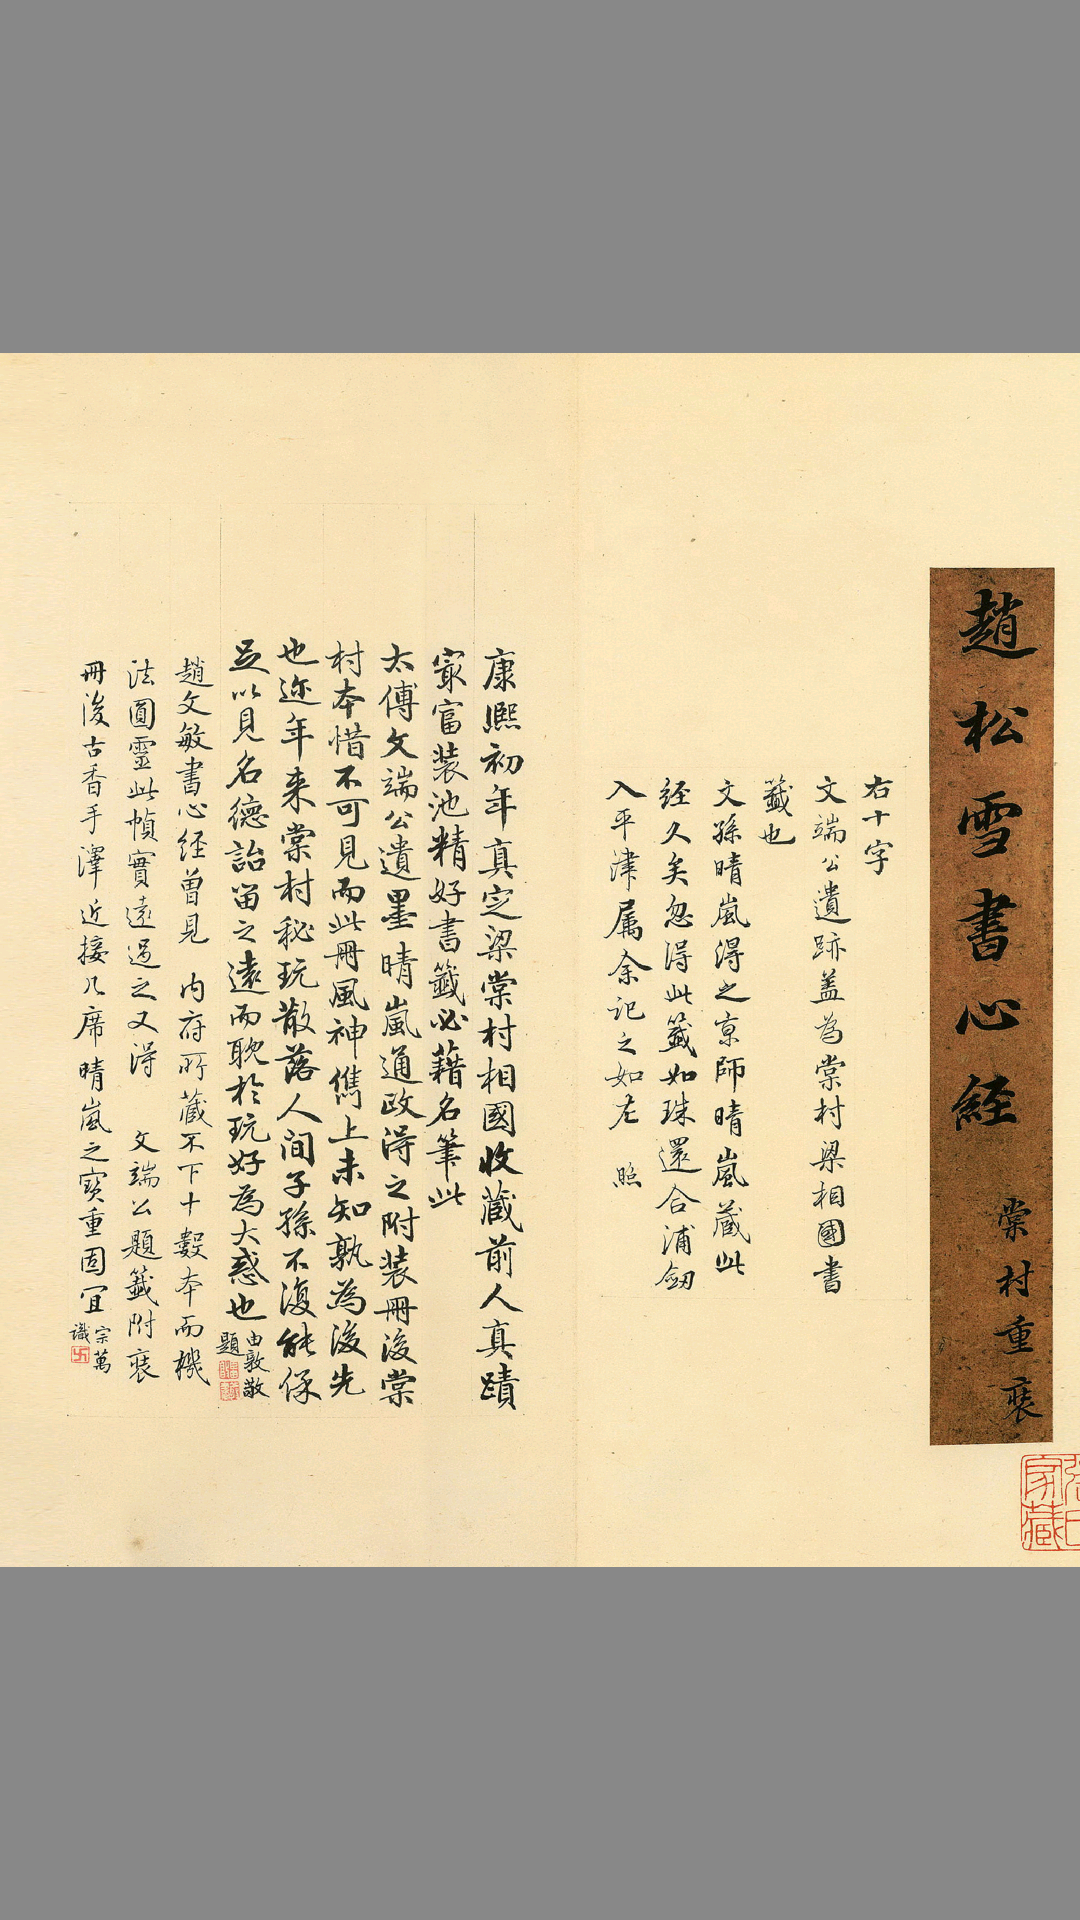 趙松雪書心経
棠村重裝
右十字
文端公遺跡蓋為棠村梁相國書
籤也
文孫晴嵐得之京師晴嵐藏此
経久矣忽得此籤如珠還合浦劒
入平津属余記之如左 照
康熙初年真定梁棠村相國收藏前人真蹟
寂富裝池精好書籤必藉名筆此
太傅文端公遺墨晴嵐通政得之附裝冊後棠
村本惜不可見而此冊風神儁上未知孰為後先
也迩年来棠村秘玩散落人間子孫不復能保
足以見名德詒留之遠而耽於玩好為大惑也
由敦敬
題
趙文敏書心経曾見 内府所藏不下十數本而機
法圓靈此幀實遠過之又得 文端公題籤附裝
冊後古香手澤近接几席晴嵐之寶重固宜
宗萬
識
張氏
家藏